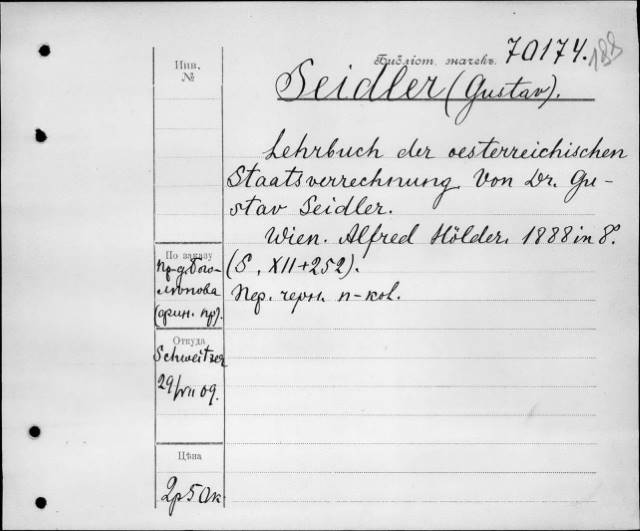 Библіот. значекъ. 70174.
188
Инв.
№
Seidler (Gustav).
Lehrbuch der oesterreichischen
Staatsverrechnung. Von Dr. Gu-
stav Seidler.
Wien. Alfred Hölder. 1888 in 8º.
(S. XII+252).
Пер. черн. п-кол.
По заказу
пр-д. Бого-
лѣпова
(фин. пр).
Откуда
Schweitzer
29/VII 09.
Цѣна
2р 50к